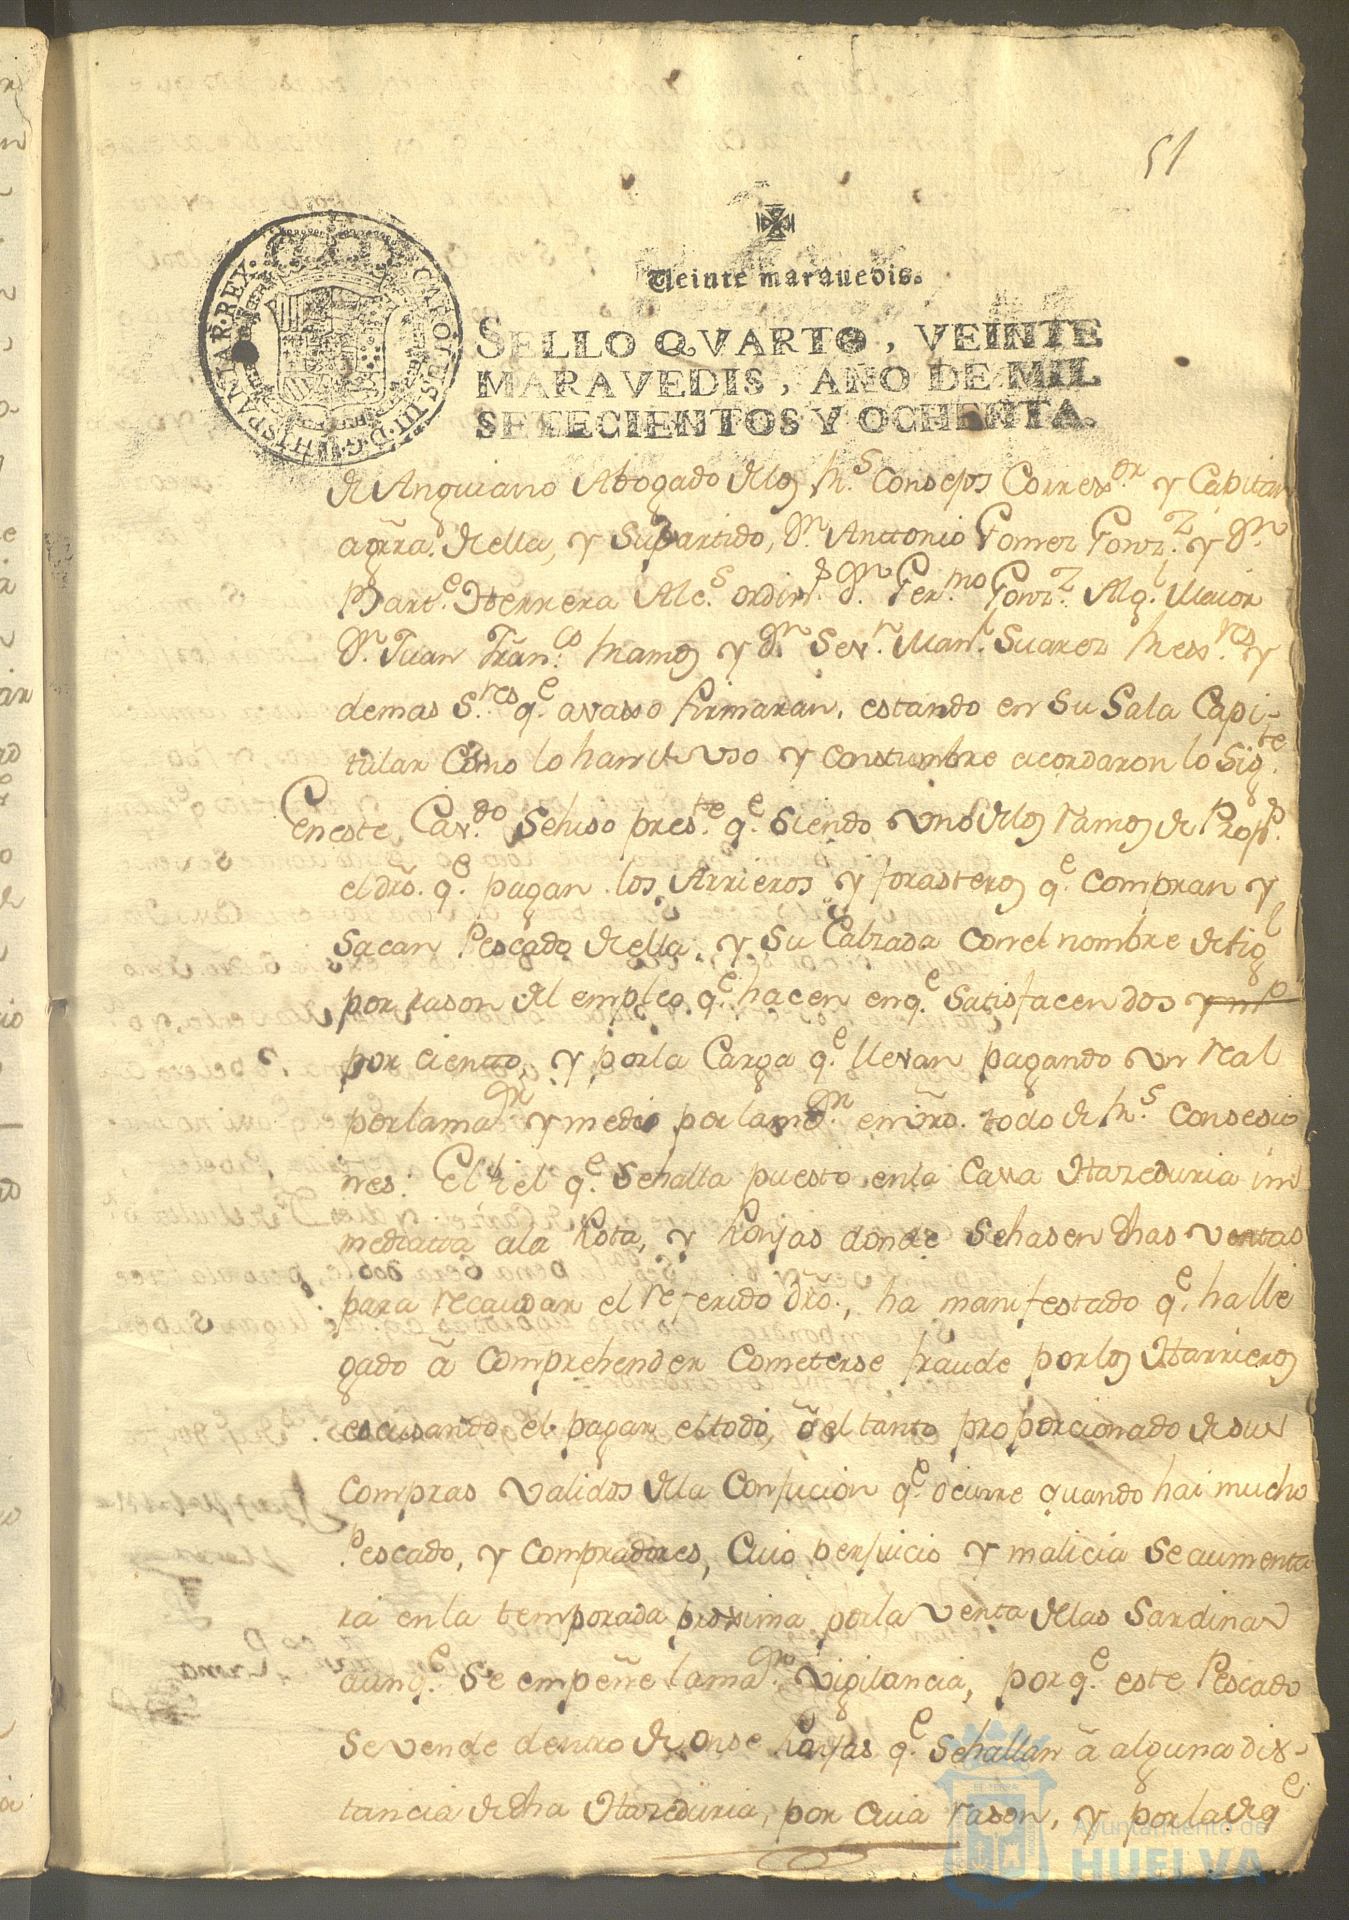 51
Veinte marauedis.
SELLO QVARTO, VEINTE
MARAVEDIS, AÑO DE MIL
SETECIENTOS Y OCHENTA.
CAROLUS III D G HISPANIAR REX
de Anguiano Abogado de los Rs. Consejos Corregor. y Capitan
a grra. de ella, y su partido, Dn. Anttonio Gomez Gonzz. y Dn.
Barte. Herrera Alcs. ordins. Dn. Germo Gonzz. Algl. Maior
Dn. Juan Franco. Ramos y Dn. Sevn. Manl. Suarez Rexres y
demas Sres. qe. avaxo firmaran, estando en su Sala Capi-
tular como lo han de uso y constumbre acordaron lo Sigte.
En este Cavdo. se hiso preste. qe. siendo uno de los ramos de Props.
el dro. qe. pagan los Arrieros y forasteros qe. compran y
sacan Pescado de ella, y su Calzada con el nombre de figl
por rason del empleo qe. hacen en qe. satisfacen dos y mo
por ciento, y por la Carga qe. llevan pagando un real
por la magr. y medio por la menr. en vro. todo de Rs. Consecio
nes. El fiel qe. se halla puesto en la Casa Hazeduria in
mediatta a la Rota, y Ronjas donde se hasen dhas ventas
para recaudar el referido dro., ha manifestado qe. ha lle
gado â comprehender cometerse fraude por los Harrieros
escusando el pagar el todo, ô el tanto proporcionado de sus
compras validos de la Confucion qe. ocurre quando hai mucho
Pescado, y compradores, cuio perjuicio y malicia se aumenta
rá en la temporada proxima por la venta de las Sardinas
aunqe. se empeñe la magr. vigilancia, por qe. este Pescado
se vende dentro de onse Ronjas qe. se hallan â alguna dis-
tancia de dha Hazeduria, por cuia rason, y por la de qe.
Ayuntamiento de
HUELVA